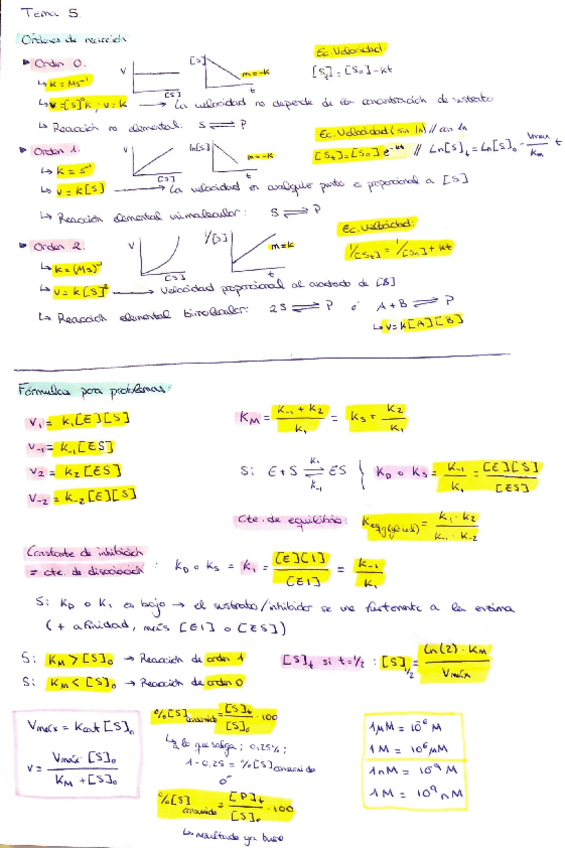 Tema 5.
Ordenes de reacción
Orden 0:
V
[S]
[S]
t
m=-k
Ec. Velocidad
[S]t = [S₀]-kt
↳ k = Ms⁻¹
↳ v=[S]⁰k ; v=k → La velocidad no depende de la concentración de sustrato
↳ Reacción no elemental: S ⇌ P
Orden 1:
V
[S]
ln[S]
t
m=-k
Ec. Velocidad (sin ln) // con ln
[St]=[S₀] e⁻ᵏᵗ // Ln[S]t = Ln[S]₀ - Vmax/Km t
↳ k = s⁻¹
↳ v = k[S] → La velocidad en cualquier punto es proporcional a [S]
↳ Reacción elemental unimolecular: S ⇌ P
Orden 2:
V
[S]
1/[S]
t
m=k
Ec. Velocidad:
1/[St] = 1/[S₀] + kt
↳ k = (Ms)⁻¹
↳ v = k[S]² → Velocidad proporcional al cuadrado de [S]
↳ Reacción elemental bimolecular: 2S ⇌ P ó A+B ⇌ P
↳ v=k[A][B]
Fórmulas para problemas:
V₁ = k₁[E][S]
V₋₁ = k₋₁[ES]
V₂ = k₂[ES]
V₋₂ = k₋₂[E][S]
KM = k₋₁ + k₂ / k₁ = kS + k₂/k₁
Si E+S ⇌ ES
k₁
k₋₁
KD o KS = k₋₁/k₁ = [E][S]/[ES]
Cte. de equilibrio: Keq (global) = k₁·k₂ / k₋₁·k₋₂
Constante de inhibición
= cte. de disociación : KD o KS = Ki = [E][I]/[EI] = k₋₁/k₁
Si KD o Ki es bajo → el sustrato/inhibidor se une fuertemente a la enzima
(+ afinidad, más [EI] o [ES])
Si KM > [S]₀ → Reacción de orden 1
Si KM < [S]₀ → Reacción de orden 0
[S]t si t=1/2 : [S]1/2 = Ln(2)·KM / Vmáx
Vmáx = kcat [S]₀
v = Vmáx·[S]₀ / KM + [S]₀
%[S]consumido = [S]t/[S]₀ · 100
↳ a lo que salga ; 0,25% ;
1-0,25 = %[S]consumido
ó
%[S]consumido = [P]t/[S]₀ · 100
↳ resultado ya bueno
1μM = 10⁻⁶ M
1M = 10⁶ μM
1nM = 10⁻⁹ M
1M = 10⁹ nM